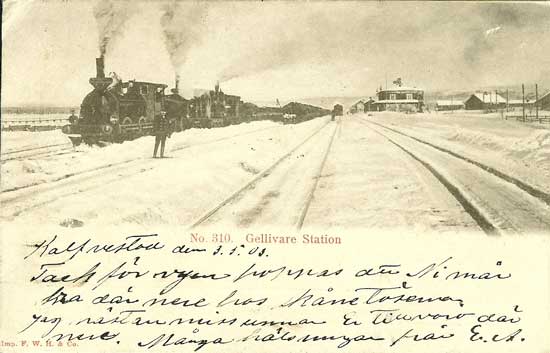 No. 310. Gellivare Station
Kalfvestad den 3.1.03.
Tack för vyen hoppas att Ni mår
bra där nere hos
Jag nästan missunnar Er där
nere. Många hälsningar från E. A.
Imp. F. W. H. & Co.